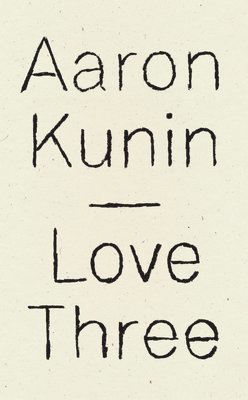 Aaron
Kunin
Love
Three